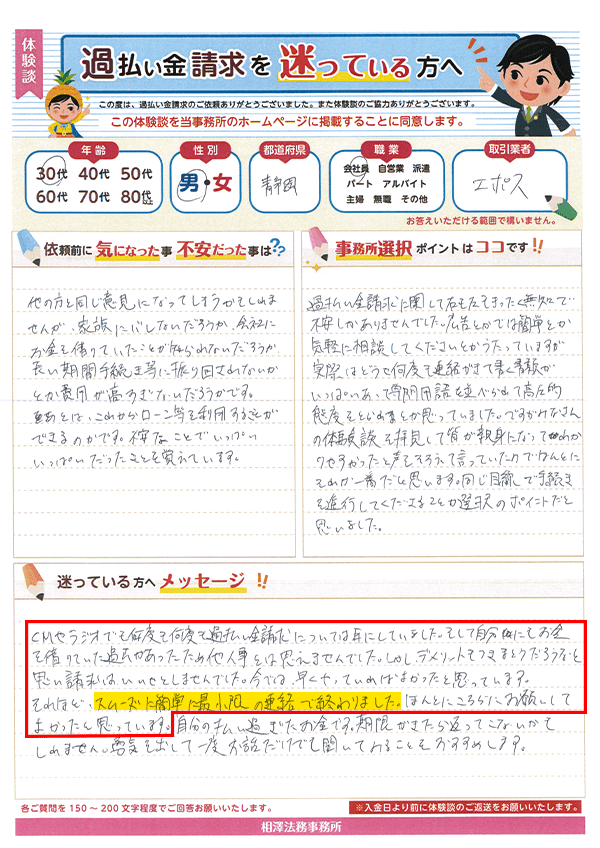 体験談
過払い金請求を迷っている方へ
この度は、過払い金請求のご依頼ありがとうございました。また体験談のご協力ありがとうございます。
この体験談を当事務所のホームページに掲載することに同意します。
年齢
30代 40代 50代
60代 70代 80代以上
性別
男・女
都道府県
静岡
職業
会社員 自営業 派遣
パート アルバイト
主婦 無職 その他
取引業者
エポス
お答えいただける範囲で構いません。
依頼前に気になった事不安だった事は??
他の方と同じ意見になってしまうかもしれま
せんが、家族にバレないだろうか、会社に
お金を借りていたことが知られないだろうか
長い期間手続き等に振り回されないか
とか費用が高すぎないだろうかです。
あとは、これからローン等を利用することが
できるのかです。不安なことでいっぱい
いっぱいだったことを覚えています。
事務所選択ポイントはココです!!
過払い金請求に関して右も左もまったく無知で
不安しかありませんでした。広告とかでは簡単とか
気軽に相談してくださいとかうたっていますが
実際はどうせ何度も連絡がきて書く書類が
いっぱいあって専門用語を並べられて高圧的
態度をとられるとか思っていました。ですがみなさん
の体験談を拝見して皆が親身になってわか
りやすかったと声をそろえて言っていたのでほんとに
それが一番だと思います。同じ目線で手続き
を進行してくださることが選択のポイントだと
思いました。
迷っている方へメッセージ!!
CMやラジオでも何度も何度も過払い金請求については耳にしていました。そして自分自身にもお金
を借りていた過去があったため他人事とは思えませんでした。しかし、デメリットもつきまとうだろうなと
思い請求はいいやとしませんでした。今では、早くやっていればよかったと思っています。
それほど、スムーズに簡単に最小限の連絡で終わりました。ほんとにこちらにお願いして
よかったと思っています。自分の払い過ぎたお金です。期限がきたら返ってこないかも
しれません。勇気を出して一度お話だけでも聞いてみることをおすすめします。
各ご質問を150～200文字程度でご回答お願いいたします。
※入金日より前に体験談のご返送をお願いいたします。
相澤法務事務所